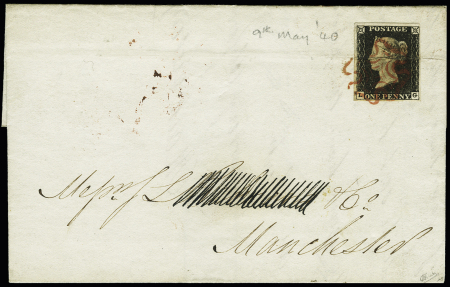 9th May '40
POSTAGE
ONE PENNY
Messrs J L & Co
Manchester